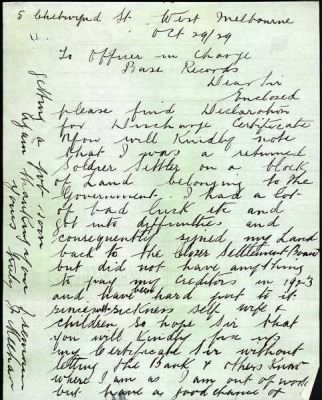 5 Chetwynd St West Melbourne
Oct 29/29
To Officer in Charge
Base Records
Dear Sir
Enclosed
please find Declaration
for Discharge Certificate
You will Kindly note
that I was a returned
Soldier Settler on a block
of Land belonging to the
Government. I had a lot
of bad luck etc and
got into difficulties and
consequently signed my Land
back to the Closer Settlement Board
but did not have anything
to pay my Creditors in 1923
and have been hard put to it
since with sickness self wife &
children So hope Sir that
you will Kindly give us
my Certificate Sir without
letting the Bank & others Know
where I am as I am out of work
but have a good chance of
getting a job soon
I am Thanking you in
Yours truly J Meehan